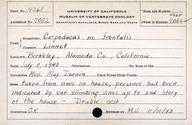 UNIVERSITY OF CALIFORNIA
MUSEUM OF VERTEBRATE ZOOLOGY
No. 4261
7082
Carpodacus m. frontalis
Linnet
Berkeley, Alameda Co., California.
July 8, 1943
Miss May Durain
Taken from nest on house, presence had been
indicated by cat climbing vines up to 2nd story
of the house - Double nest
11/11/43